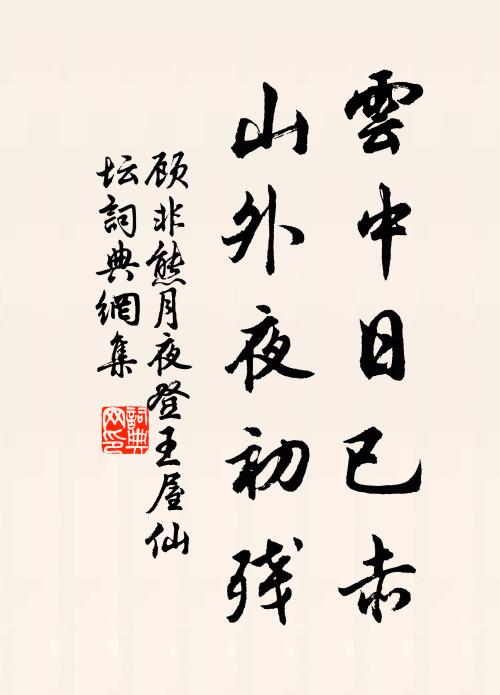 雲中日已赤
山外夜初残
顾非熊月夜登王屋仙
坛詞典網集
詞典网印